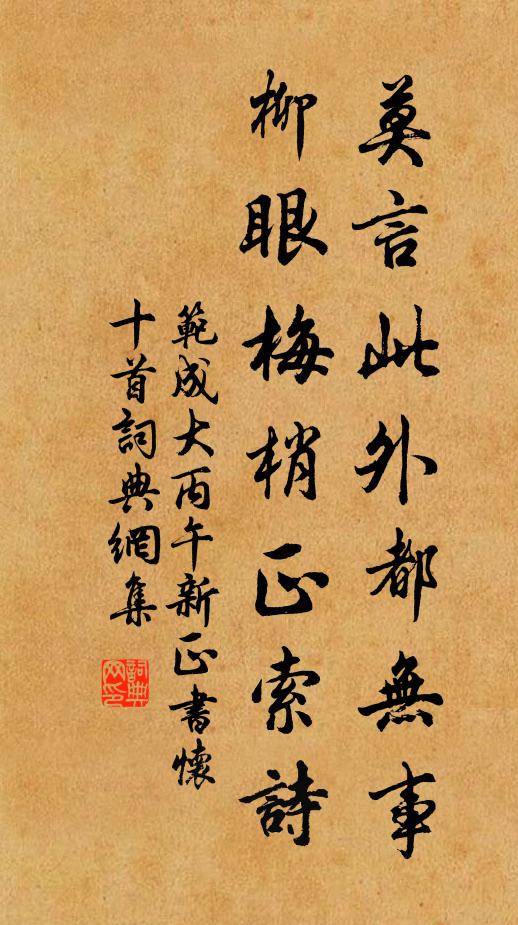 莫言此外都無事
柳眼梅梢正索詩
範成大丙午新正書懷
十首詞典網集
詞典網印